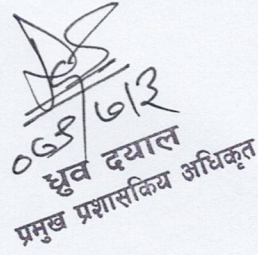 ध्रुव दयाल
प्रमुख प्रशासकिय अधिकृत